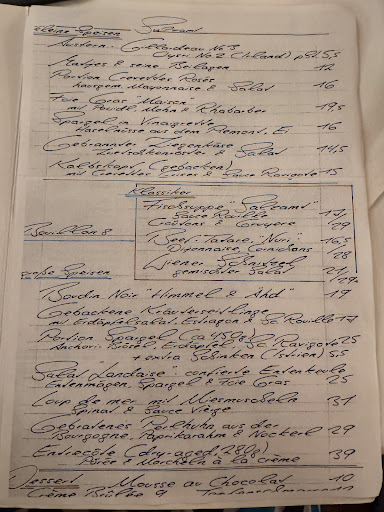 kleine Speisen Salzamt
Austern: Gillardeau No 3
Ogri No 2 (Irland) p.St. 5,5
Matjes & seine Beilagen 12
Portion Crevettes Rosés
hausgem. Mayonnaise & Salat 16
Foie Gras "Maison"
mit Powidl, Mohn & Rhabarber 19,5
Spargel in Vinaigrette
Haselnüsse aus dem Piemont, Ei 16
Gebratener Ziegenkäse
& Salat 14,5
Kalbskopf (gebacken)
mit Crevettes & Sauce Ravigote 15
Klassiker
Fischsuppe "Salzamt" 17/
Sauce Rouille
Croûtons & Gruyère 29
Bouillon 8
Beef-Tatare "Nuri" 16,5
Dijonnaise Cornichons /28
Wiener Schnitzel 21/
gemischter Salat 29
große Speisen
Boudin Noir "Himmel & Ähd" 19
Gebackene Kräuterseitlinge
mit Erdäpfelsalat, Estragon & Sc. Rouille 17
Portion Spargel (ca 450g)
Erdäpfel, Sc. Ravigote 25
+ extra Schinken (Istrien) 5,5
Salat "Landaise" confierte Entenkeule
Entenmägen, Spargel & Foie Gras 25
Loup de mer mit Miesmuscheln
Spinat & Sauce Vierge 31
Gebratenes Perlhuhn aus der
Bourgogne, Paprikarahm & Nockerl 29
Entrecôte (dry-aged, 280g)
Püree & Morcheln à la crème 39
Dessert Mousse au Chocolat 10
Crème Brûlée 9